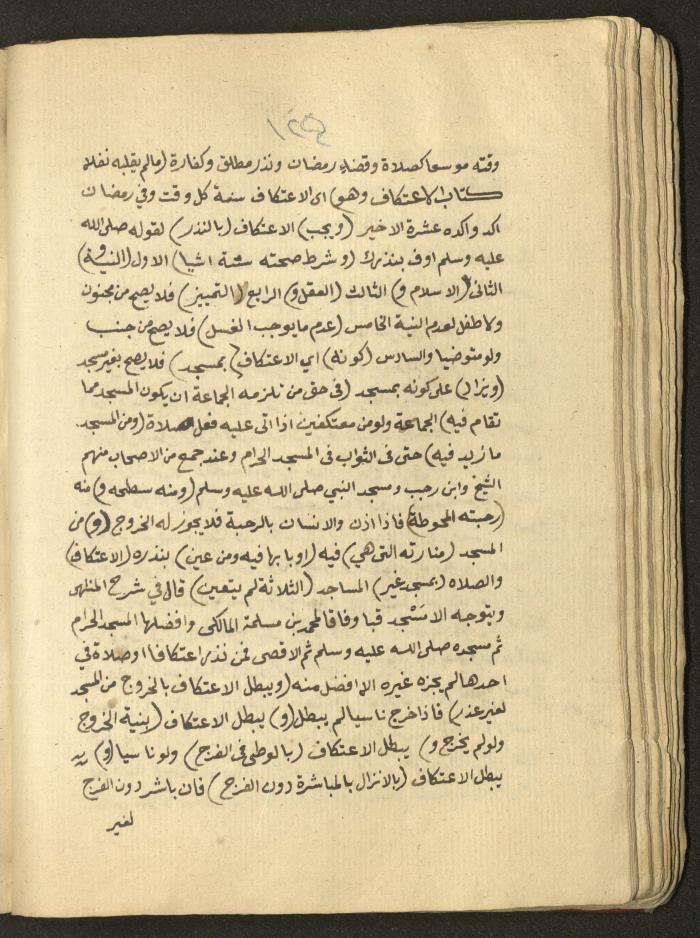 وقته موسعا كصلاة وقضاء رمضان ونذر مطلق وكفارة (مالم يقلبه نفلا
كتاب الاعتكاف وهو) اى الاعتكاف سنة كل وقت وفي رمضان
اكد واكده عشرة الاخير (ويجب) الاعتكاف (بالنذر) لقوله صلى الله
عليه وسلم اوف بنذرك (وشرط صحته ستة اشيا) الاول (النية و)
الثانى (الاسلام و) الثالث (العقل و) الرابع (التمييز) فلا يصح من مجنون
ولا طفل لعدم النية الخامس (عدم ما يوجب الغسل) فلا يصح من جنب
ولو متوضيا والسادس (كونه) اي الاعتكاف (بمسجد) فلا يصح بغير مسجد
(ويزاد) على كونه بمسجد (في حق من تلزمه الجماعة ان يكون المسجد مما
تقام فيه) الجماعة ولو من معتكفين اذا اتى عليه فعل صلاة (ومن المسجد
ما زيد فيه) حتى فى الثواب فى المسجد الحرام وعند جمع من الاصحاب منهم
الشيخ وابن رجب ومسجد النبي صلى الله عليه وسلم (ومنه سطحه و) منه
(رحبته المحوطة) فاذا اذن والانسان بالرحبة فلا يجوز له الخروج (و) من
المسجد (منارته التى هي) فيه (او بابها فيه ومن عين) بنذره (الاعتكاف)
والصلاه (بمسجد غير) المساجد (الثلاثة لم يتعين) قال في شرح المنتهى
ويتوجه الا مسجد قبا وفاقا لمحمد بن مسلمة المالكى وافضلها المسجد الحرام
ثم مسجده صلى الله عليه وسلم ثم الاقصى فمن نذر اعتكافا او صلاة في
احدها لم يجزه غيره الا افضل منه (ويبطل الاعتكاف بالخروج من المسجد
لغير عذر) فاذا خرج ناسيا لم يبطل (و) يبطل الاعتكاف (بنية الخروج
ولو لم يخرج و) يبطل الاعتكاف (بالوطى في الفرج) ولو ناسيا (و)
يبطل الاعتكاف (بالانزال بالمباشرة دون الفرج) فان باشر دون الفرج
لغير